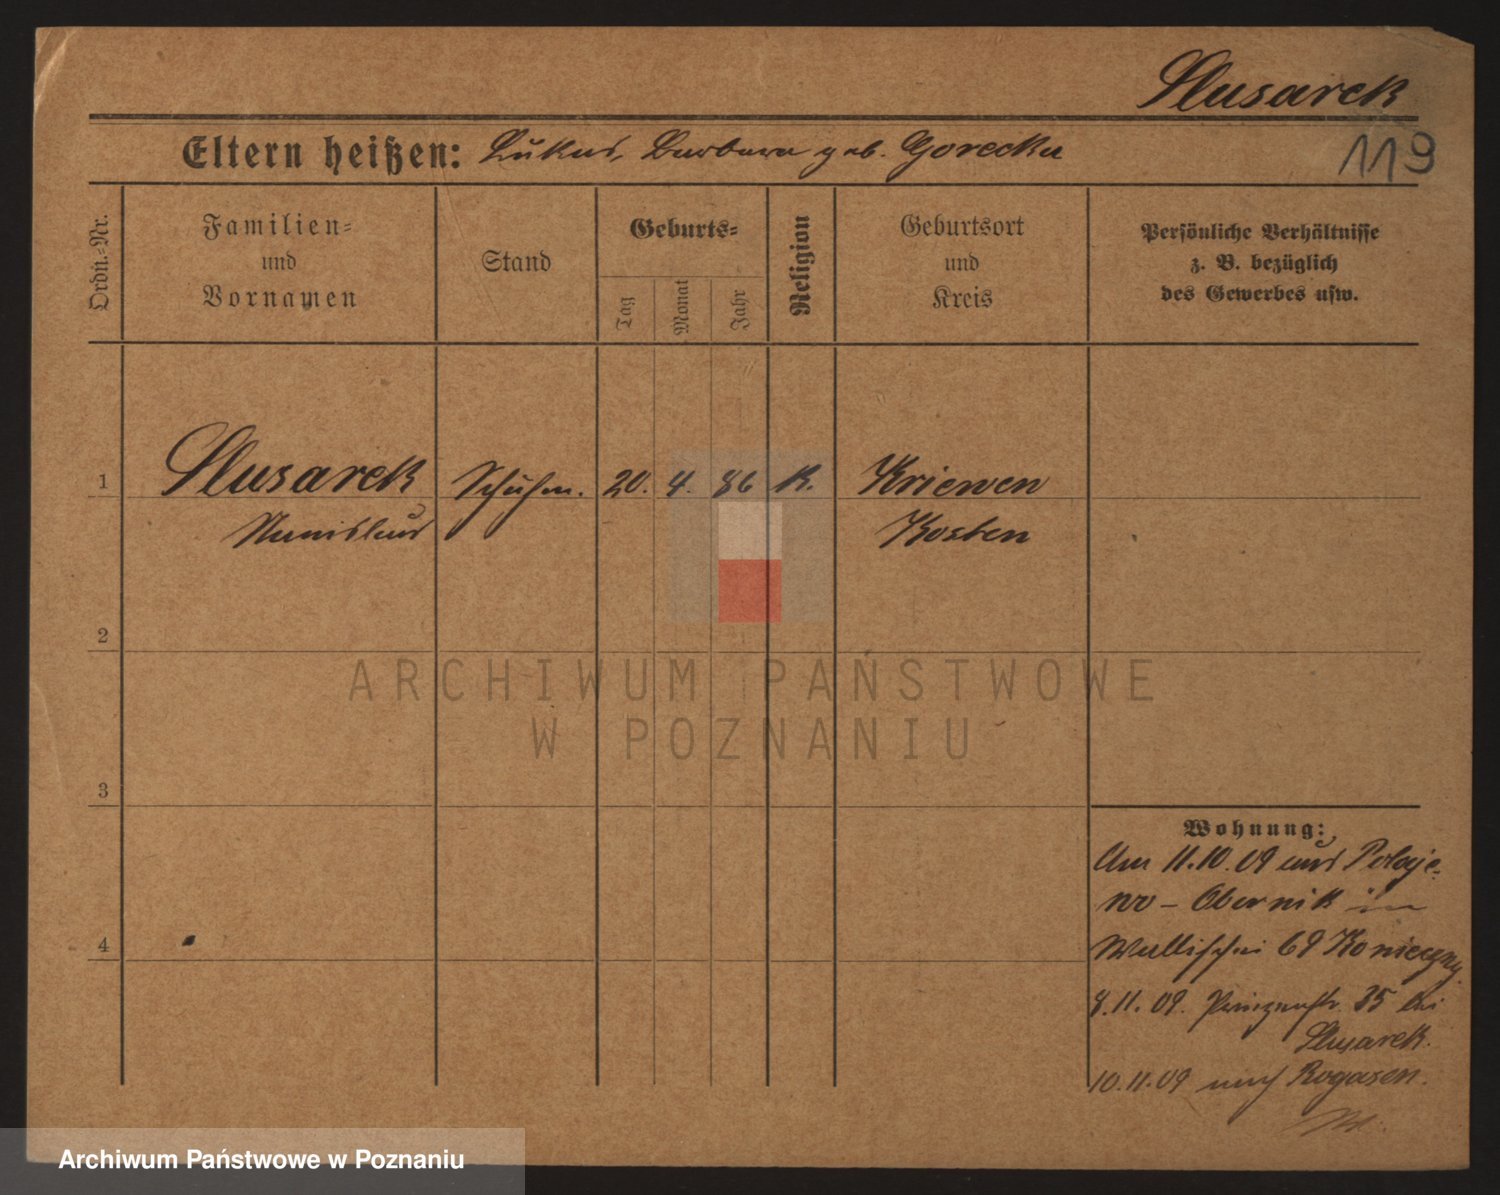 Slusarek
119
Eltern heißen: Lukas, Barbara geb. Gorecka
Ordn.-Nr.
Familien-
und
Vornamen
Stand
Geburts-
Tag
Monat
Jahr
Religion
Geburtsort
und
Kreis
Persönliche Verhältnisse
z. B. bezüglich
des Gewerbes usw.
1
Slusarek Schuhm. 20. 4. 86 K. Kriewen
Stanislaus Kosten
2
ARCHIWUM PAŃSTWOWE
W POZNANIU
3
Wohnung:
Am 11.10.09 aus Polaje-
wo - Obernik in
Wallischei 69 Konieczny
8.11.09. Prinzenstr. 35 bei
Slusarek.
10.11.09 nach Rogasen.
4
Archiwum Państwowe w Poznaniu